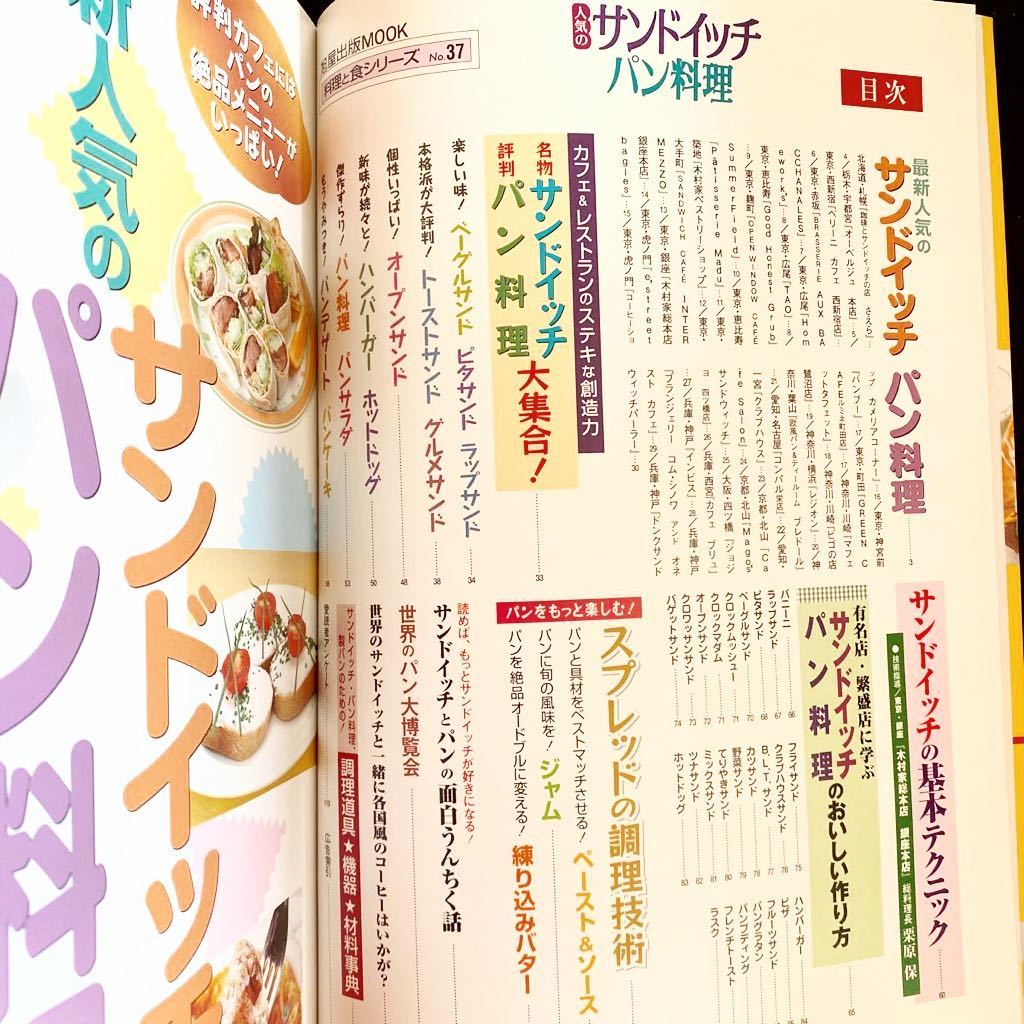 新人気の
サンドイッチ
パン料
評判カフェには
パンの
絶品メニューが
いっぱい!
旭屋出版MOOK
料理と食シリーズ No.37
人気の
サンドイッチ
パン料理
目次
最新人気の
サンドイッチ パン料理 3
北海道・札幌「珈琲とサンドイッチの店 さえら」…
4/栃木・宇都宮「オーベルジュ 本店」…5/
東京・西新宿「ベリーニ カフェ 西新宿店」…
6/東京・赤坂「BRASSERIE AUX BA
CCHANALES」…8/東京・広尾「Hom
ework's」…8/東京・広尾「TAO」…8/
東京・恵比寿「Good Honest Grub」
…9/東京・麹町「OPEN WINDOW CAFÉ
Summerfield」…10/東京・恵比寿
「Pâtisserie Madu」…11/東京・
築地「木村家ベストリーショップ」…12/東京・
大手町「SANDWICH CAFÉ INTER
MEZZO」…13/東京・銀座「木村家総本店
銀座本店」…14/東京・虎ノ門「e,street
bagles」…15/東京・虎ノ門「コーヒーショ
ップ カメリアコーナー」…16/東京・神宮前
「バンブー」…17/東京・町田「GREEN C
AFE ルミネ町田店」…17/神奈川・川崎「マフェ
ットタフェット」…18/神奈川・川崎「ビゴの店
鷺沼店」…19/神奈川・横浜「レジオン」…20/神
奈川・葉山「欧風パン&ティールーム ブレドール」
…21/愛知・名古屋「コンパル栄店」…22/愛知・
一宮「クラブハウス」…23/京都・北山「Ca
fe Salon」…24/京都・北山「Mago's
サンドウィッチ」…25/大阪・四ツ橋「ジョジ
ョ 四ツ橋店」…26/兵庫・西宮「カフェ ブリュ」
…27/兵庫・神戸「インビス」…28/兵庫・神戸
「ブランジェリー コム・シノワ アンド オネ
スト カフェ」…29/兵庫・神戸「ドンクサンド
ウィッチパーラー」…30
カフェ&レストランのステキな創造力
名物 評判
サンドイッチ
パン料理
大集合! 33
楽しい味! ベーグルサンド ピタサンド ラップサンド 34
本格派が大評判! トーストサンド グルメサンド 38
個性いっぱい! オープンサンド 48
新味が続々と! ハンバーガー ホットドッグ 50
傑作ずらり! パン料理 パンサラダ 53
パンデザート パンケーキ 56
サンドイッチの基本テクニック 60
●技術指導/東京・銀座「木村家總本店 銀座本店」総料理長 栗原 保
有名店・繁盛店に学ぶ
サンドイッチ
パン料理
のおいしい作り方 65
パニーニ 66
ラップサンド 67
ピタサンド 68
ベーグルサンド 70
クロックムッシュー 71
クロックマダム 71
オープンサンド 72
クロワッサンサンド 73
バゲットサンド 74
フライサンド 75
クラブハウスサンド 76
B.L.T.サンド 77
カツサンド 78
野菜サンド 79
てりやきサンド 80
ミックスサンド 81
ツナサンド 82
ホットドッグ 83
ハンバーガー 84
ピザ
フルーツサンド
パングラタン
パンプディング
フレンチトースト
ラスク
パンをもっと楽しむ!
スプレッドの調理技術
パンと具材をベストマッチさせる! ペースト&ソース
パンに旬の風味を! ジャム
パンを絶品オードブルに変える! 練り込みバター
読めば、もっとサンドイッチが好きになる!
サンドイッチとパンの面白うんちく話
世界のパン大博覧会
世界のサンドイッチと一緒に各国風のコーヒーはいかが?
サンドイッチ・パン料理、
製パンのための!
調理道具★機器★材料事典
愛読者アンケート
広告索引